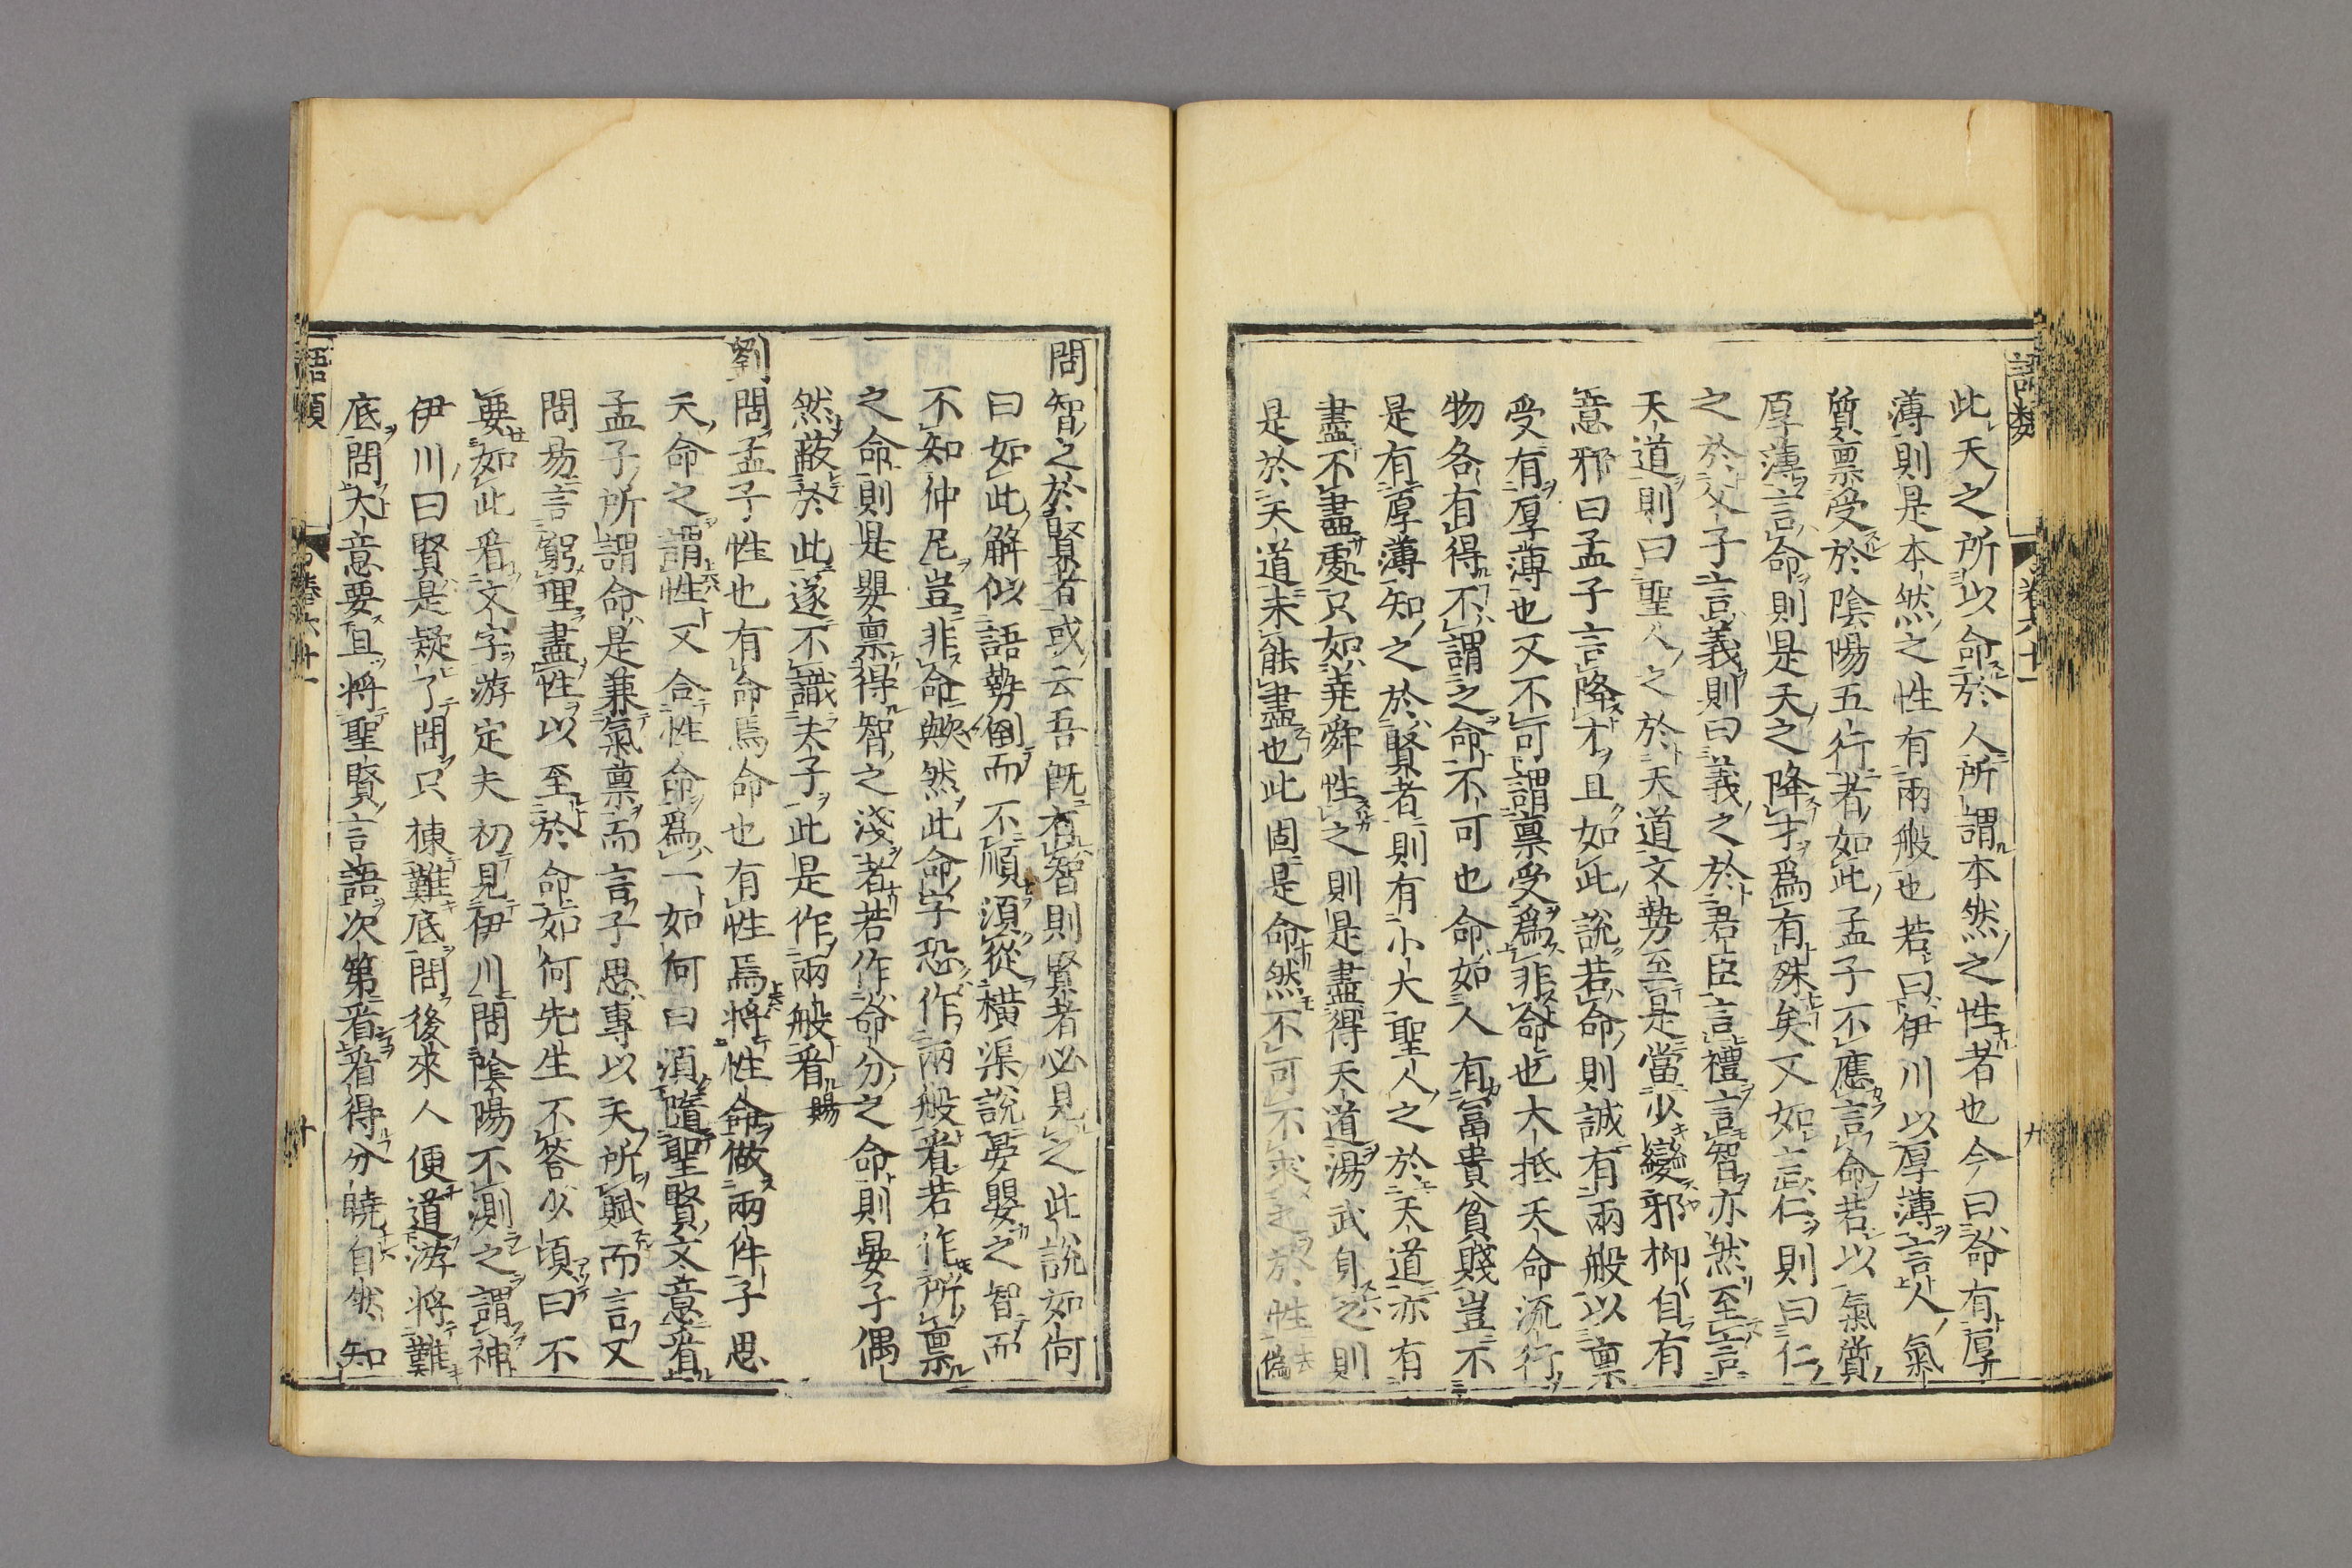 語類
卷六十一
九
此天之所以命於人所謂本然之性者也今曰命有厚
薄則是本然之性有兩般也若曰伊川以厚薄言人氣
質稟受於陰陽五行者如此孟子不應言命若以氣質
厚薄言命則是天之降才爲有殊矣又如言仁則曰仁
之於父子言義則曰義之於君臣言禮言智亦然至言
天道則曰聖人之於天道文勢至是當少變邪抑自有
意邪曰孟子言降才且如此說若命則誠有兩般以稟
受有厚薄也又不可謂稟受爲非命也大抵天命流行
物各有得不謂之命不可也命如人有富貴貧賤豈不
是有厚薄知之於賢者則有小大聖人之於天道亦有
盡不盡處只如堯舜性之則是盡得天道湯武身之則
是於天道未能盡也此固是命然不可不求之於性 僩
問智之於賢者或云吾既有智則賢者必見之此說如何
曰如此解似語勢倒而不順須從橫渠說晏嬰之智而
不知仲尼豈非命歟然此命字恐作兩般看若作所稟
之命則是嬰稟得智之淺者若作命分之命則晏子偶
然蔽於此遂不識夫子此是作兩般看 賜
劉問孟子性也有命焉命也有性焉將性命做兩件子思
天命之謂性又合性命爲一如何曰須隨聖賢文意看
孟子所謂命是兼氣稟而言子思專以天所賦而言又
問易言窮理盡性以至於命如何先生不答少頃曰不
要如此看文字游定夫初見伊川問陰陽不測之謂神
伊川曰賢是疑了問只揀難底問後來人便道游將難
底問大意要且將聖賢言語次第看看得分曉自然知
語類
卷六十一
十